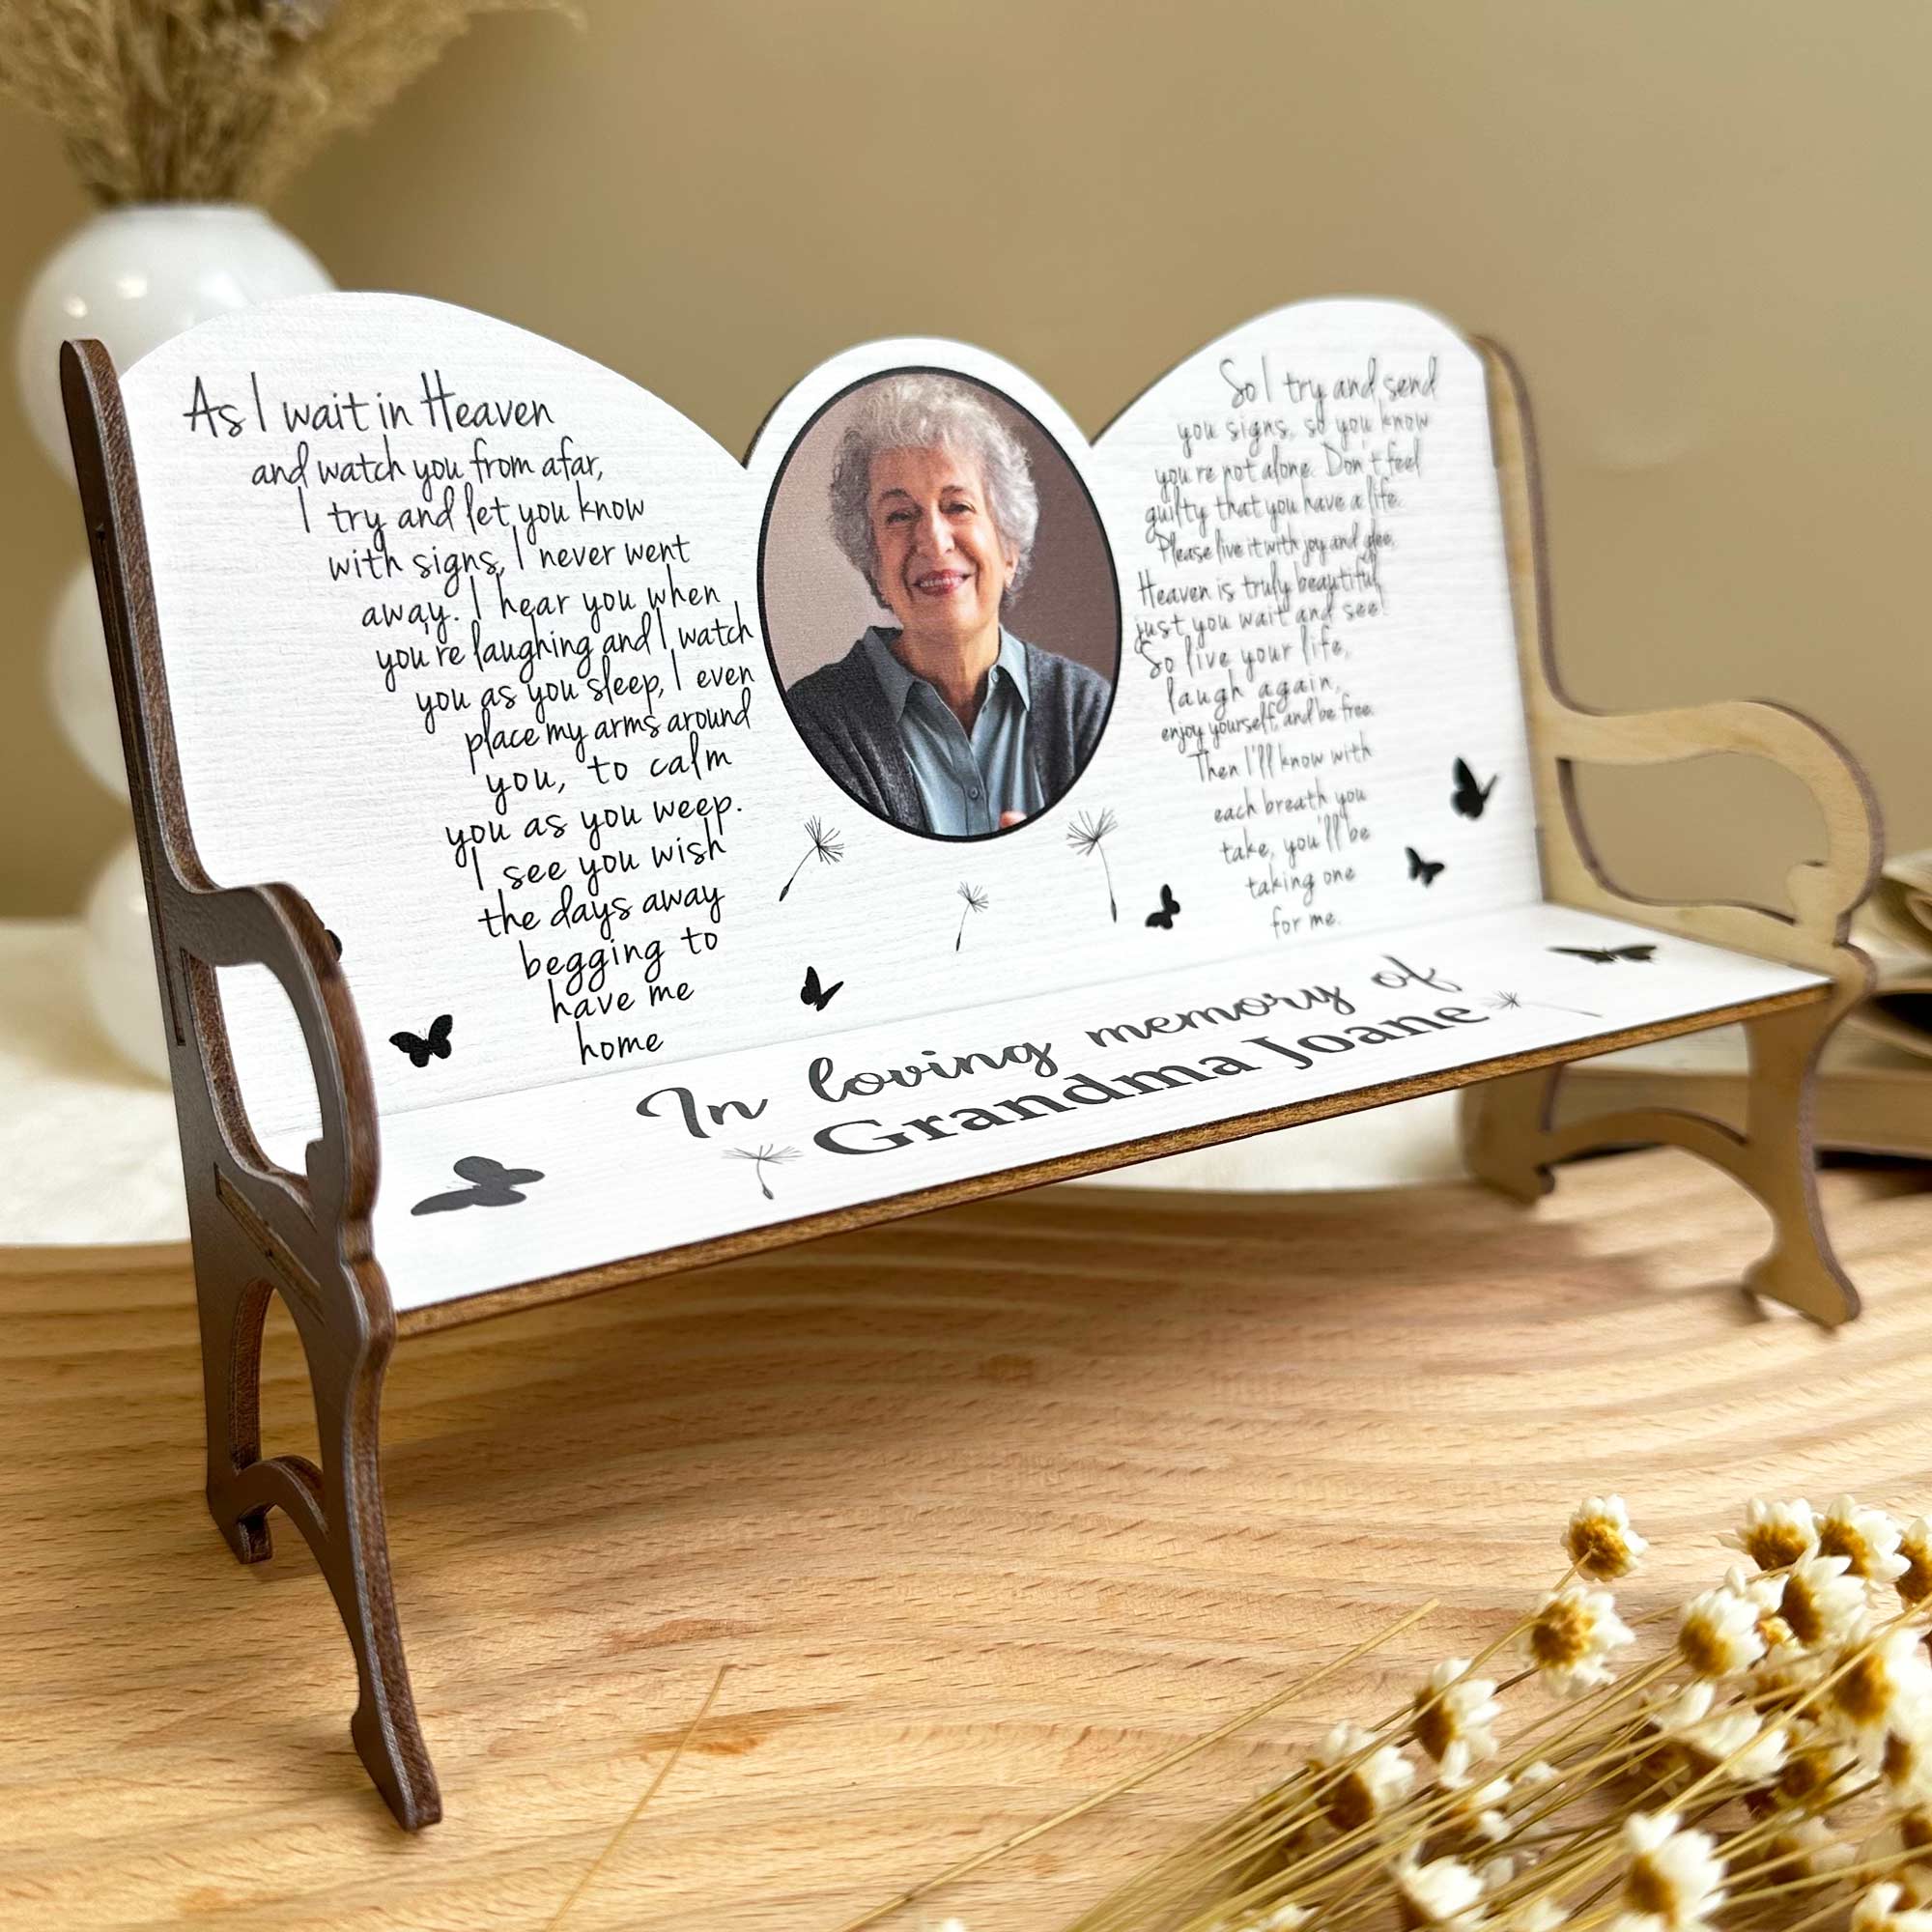 As I wait in Heaven
and watch you from afar,
I try and let you know
with signs, I never went
away. I hear you when
you're laughing and I watch
you as you sleep, I even
place my arms around
you, to calm
you as you weep.
I see you wish
the days away
begging to
have me
home
So I try and send
you signs, so you know
you're not alone. Don't feel
guilty that you have a life.
Please live it with joy and glee,
Heaven is truly beautiful,
just you wait and see!
So live your life,
laugh again,
enjoy yourself, and be free.
Then I'll know with
each breath you
take, you'll be
taking one
for me.
In loving memory of
Grandma Joane